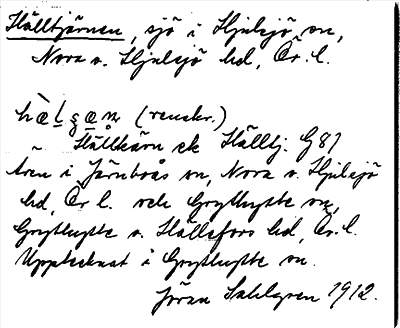 Hälltjärnen, sjö i Hjulsjö sn,
Nora o. Hjulsjö hd, Ör. l.
(renskr.)
~ Hällkärn ek Hälltj. G87
åren i Järnboås sn, Nora o. Hjulsjö
hd, Ör l. och Grythytte sn,
Grythytte o. Hällefors hd, Ör. l.
Upptecknat i Grythytte sn.
Jöran Sahlgren 1912.